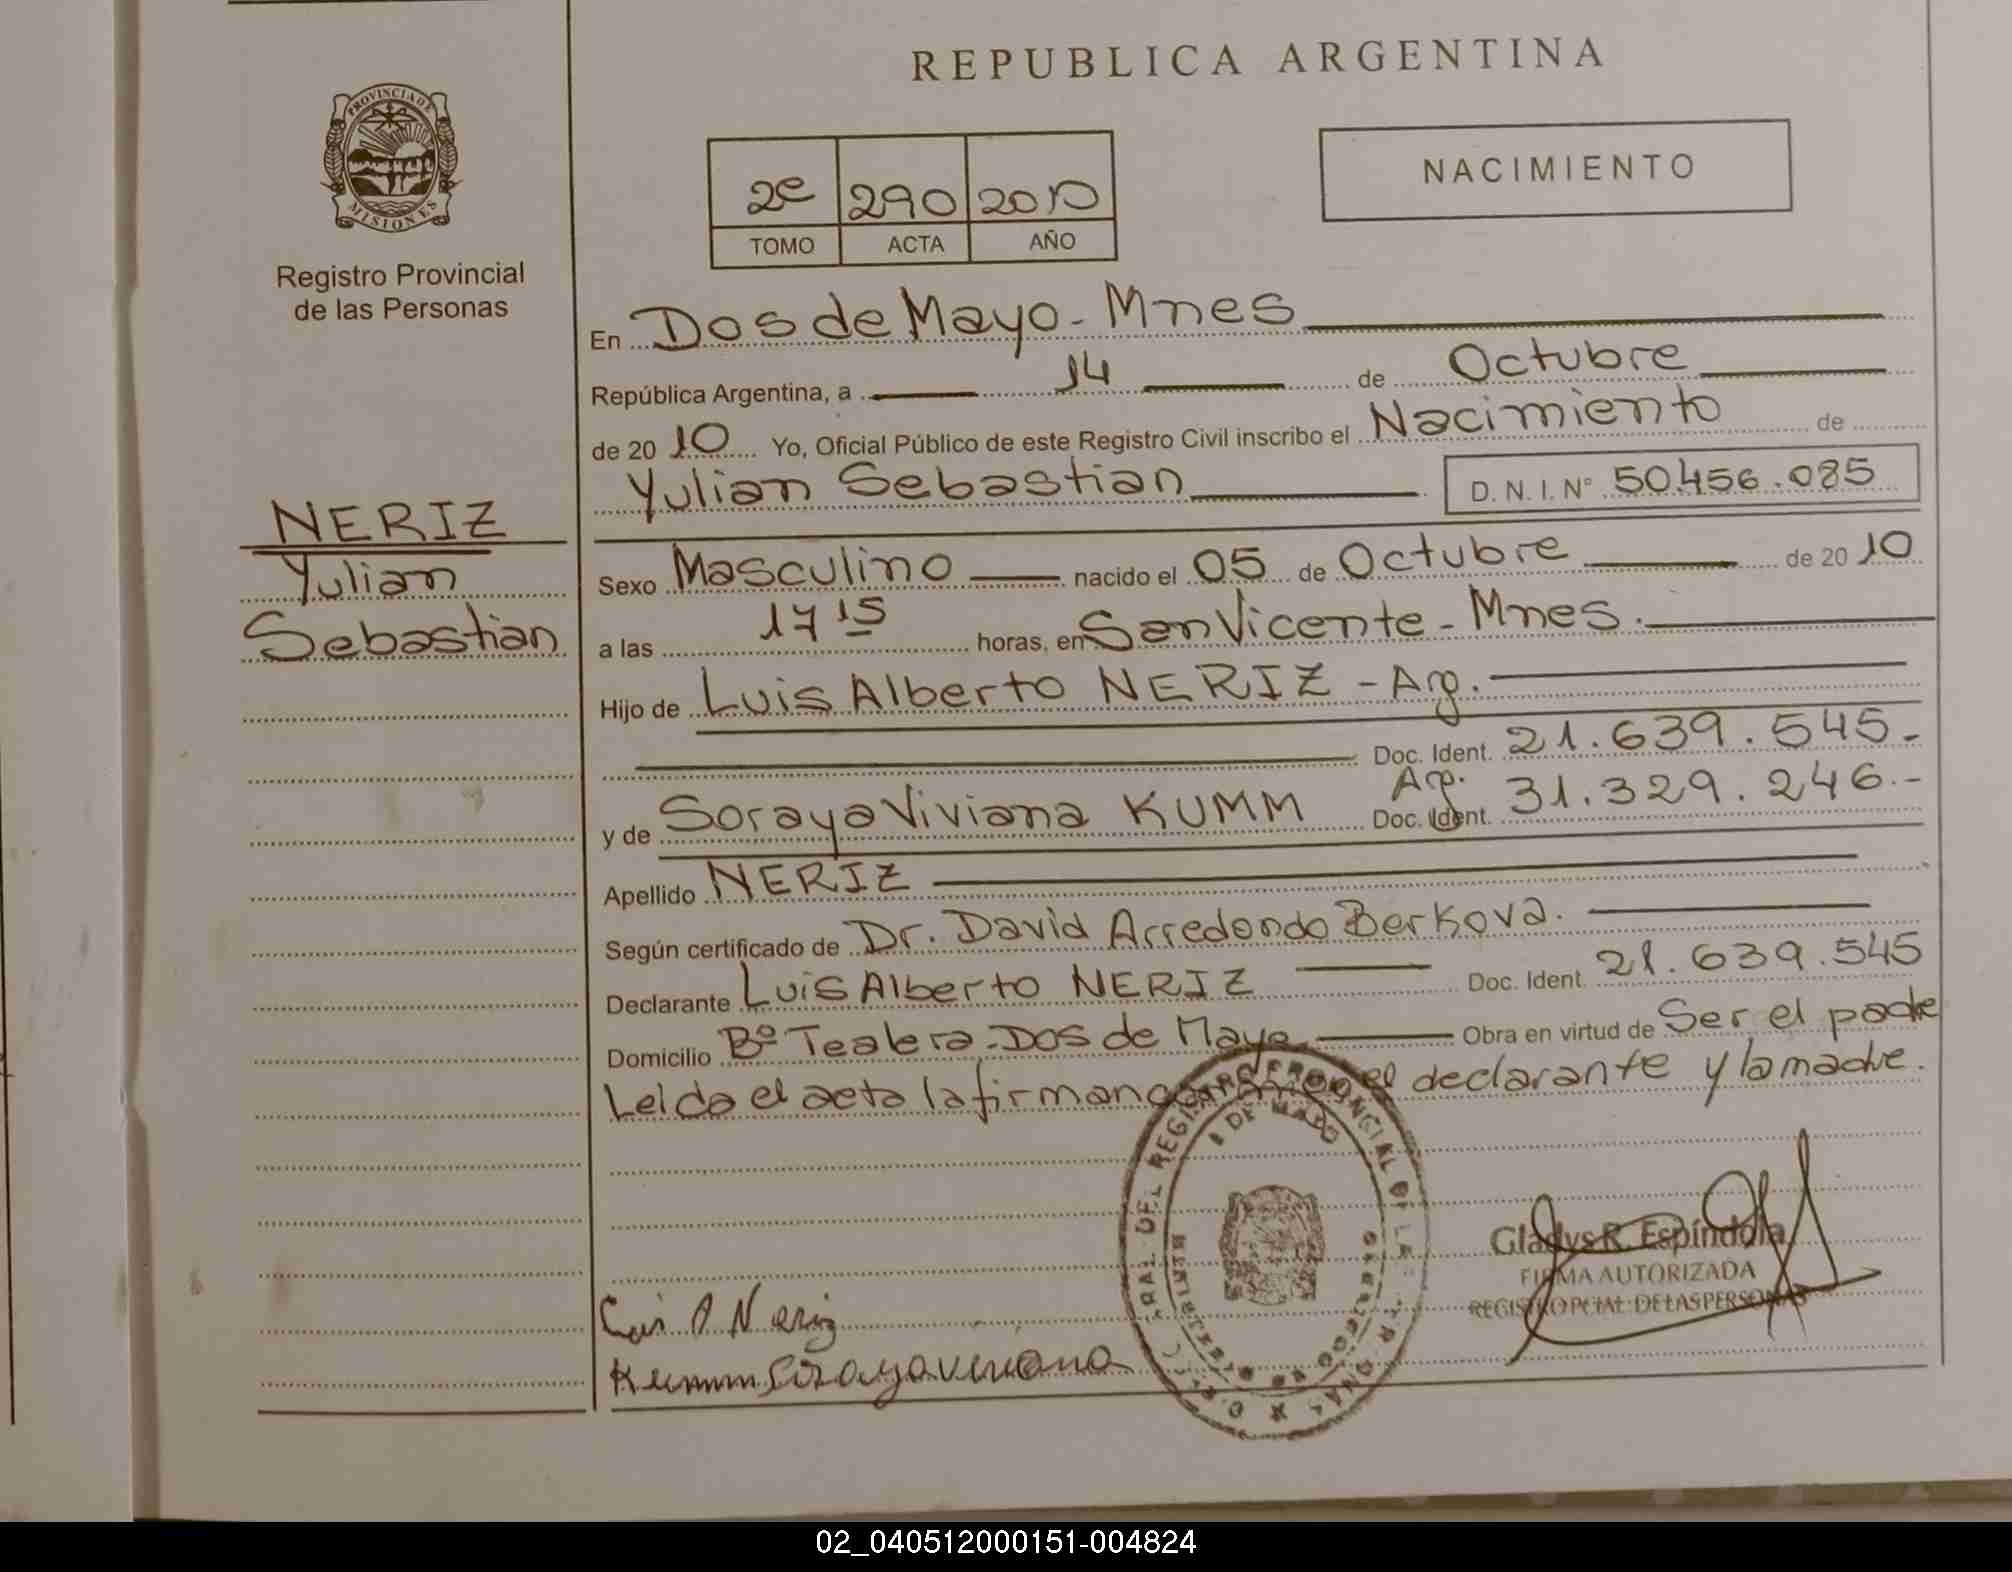 REPUBLICA ARGENTINA
PROVINCIA DE
MISIONES
Registro Provincial
de las Personas
2º 290 2010
TOMO ACTA AÑO
NACIMIENTO
En Dos de Mayo - Mnes
República Argentina, a 14 de Octubre
de 2010 Yo, Oficial Público de este Registro Civil inscribo el Nacimiento de
Yulian Sebastian D.N.I. Nº 50.456.085
NERIZ
Yulian
Sebastian
Sexo Masculino nacido el 05 de Octubre de 2010
a las 17 15 horas, en San Vicente - Mnes.
Hijo de Luis Alberto NERIZ - Arg.
Doc. Ident. 21.639.545.-
Arg.
y de Soraya Viviana KUMM Doc. Ident. 31.329.246.-
Apellido NERIZ
Según certificado de Dr. David Arredondo Berkova.
Declarante Luis Alberto NERIZ Doc. Ident. 21.639.545
Domicilio Bº Tealera - Dos de Mayo Obra en virtud de Ser el padre
Leida el acta la firman conmigo el declarante y la madre.
RAL DEL REGISTRO PROVINCIAL DE LAS
Gladys R. Espíndola
FIRMA AUTORIZADA
REGISTRO PCIAL. DE LAS PERSONAS
Luis A Neriz
Kumm Soraya viviana
02_040512000151-004824